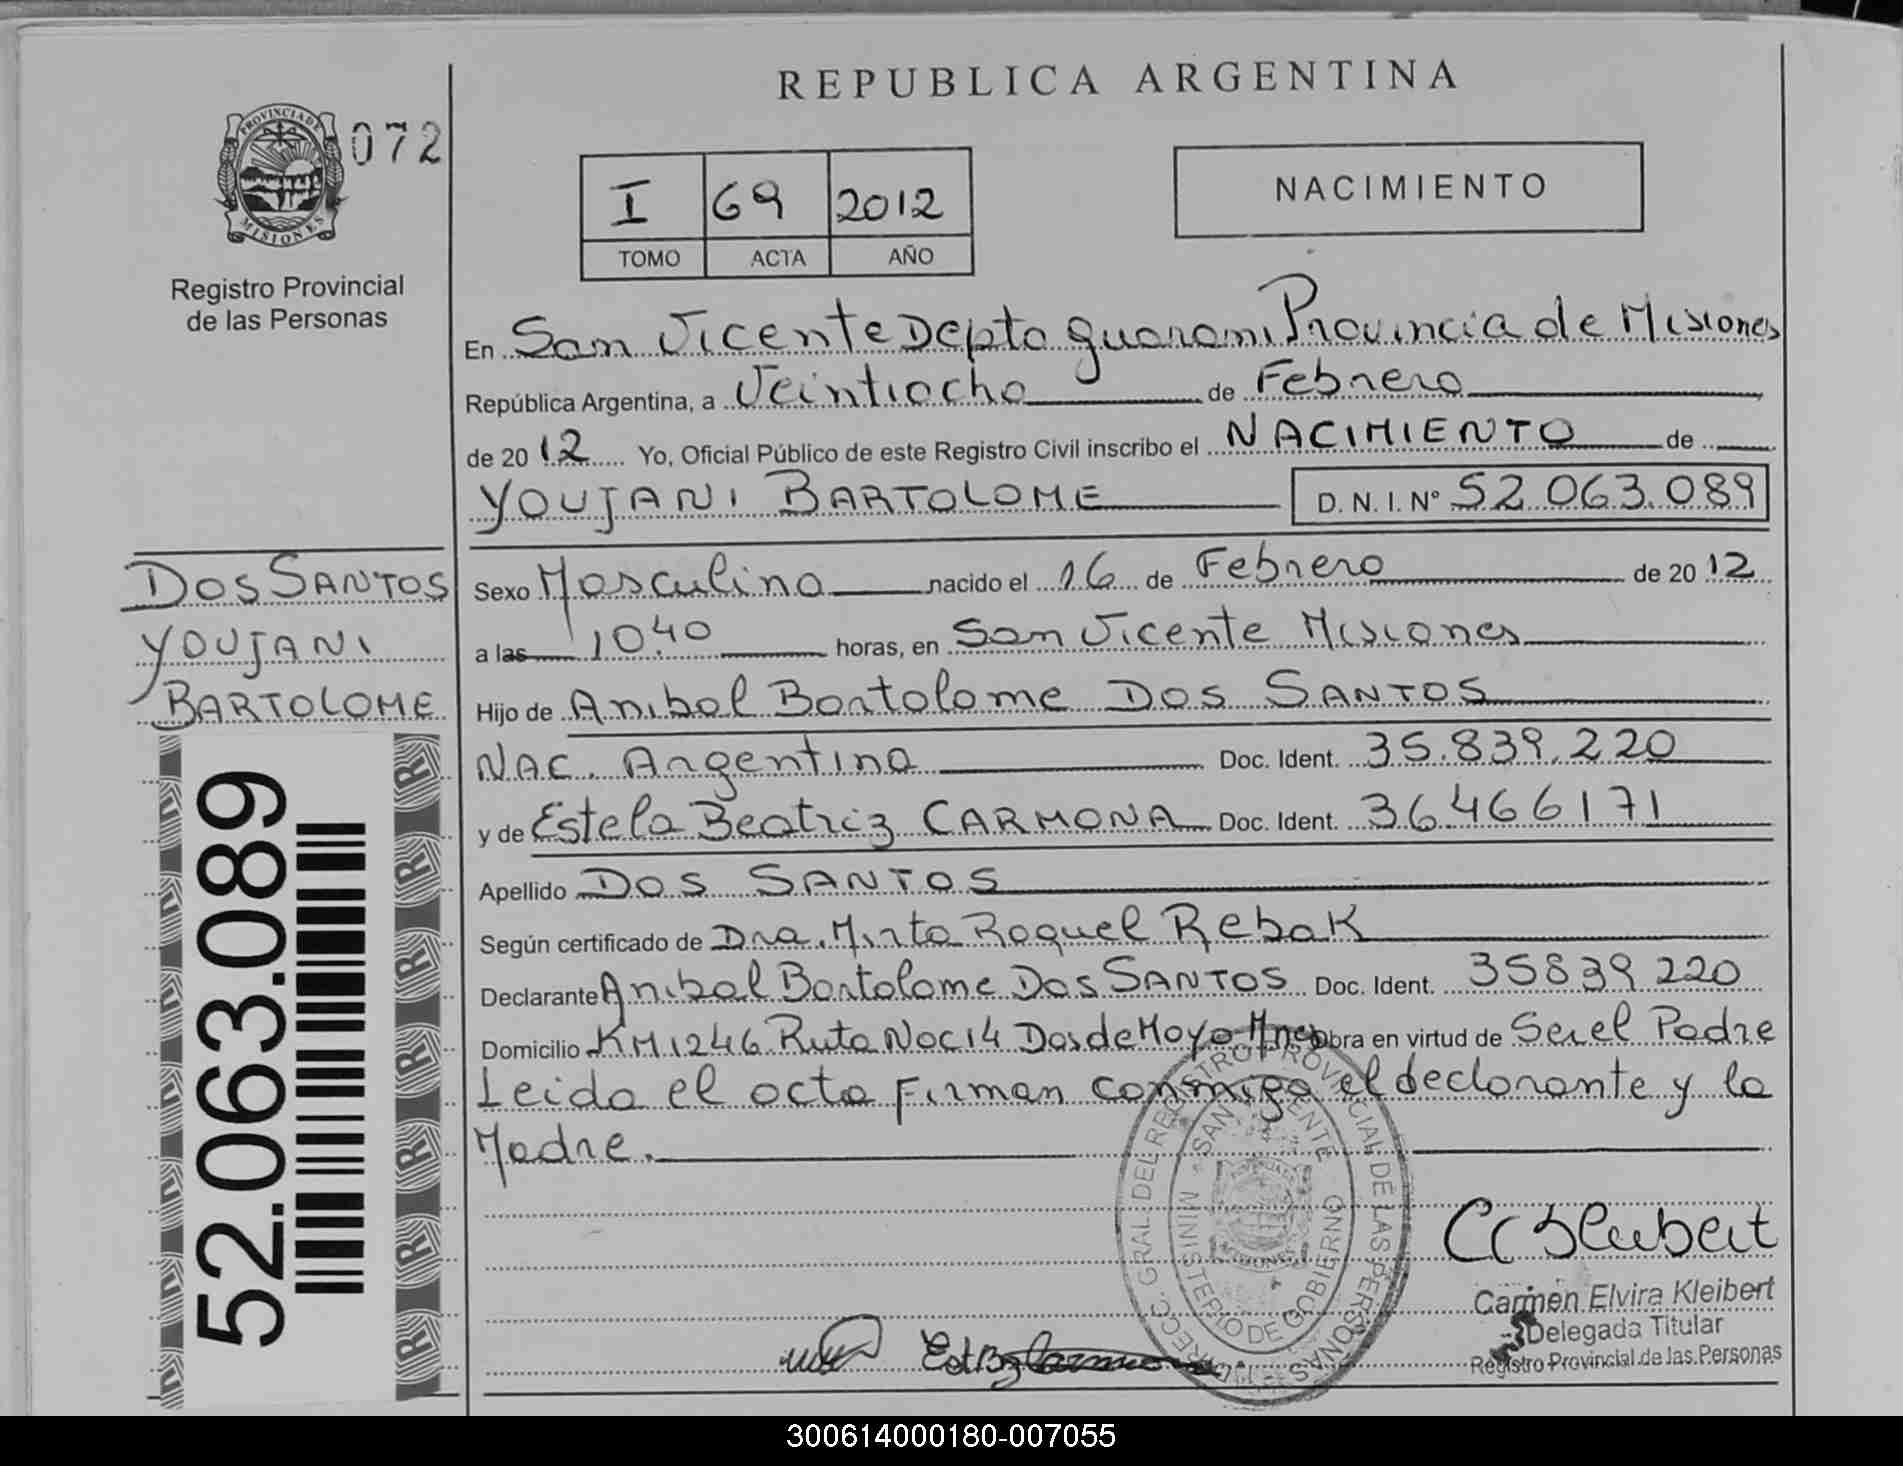 REPUBLICA ARGENTINA
PROVINCIA DE
MISIONES
072
Registro Provincial
de las Personas
I 69 2012
TOMO ACTA AÑO
NACIMIENTO
En San Vicente Depto Guarani Provincia de Misiones
República Argentina, a Veintiocho de Febrero
de 2012 Yo, Oficial Público de este Registro Civil inscribo el NACIMIENTO de
YOUJANI BARTOLOME D.N.I. Nº 52.063.089
DOS SANTOS
YOUJANI
BARTOLOME
52.063.089
Sexo Masculino nacido el 16 de Febrero de 2012
a las 10.40 horas, en San Vicente Misiones
Hijo de Anibal Bartolome DOS SANTOS
NAC. Argentina Doc. Ident. 35.839.220
y de Estela Beatriz CARMONA Doc. Ident. 36.466171
Apellido DOS SANTOS
Según certificado de Dra. Mirta Raquel Rebak
Declarante Anibal Bartolome Dos SANTOS Doc. Ident. 35839220
Domicilio KM 1246 Ruta Nac 14 Dos de Mayo Mnes obra en virtud de Ser el Padre
Leida el acta Firman conmigo el declarante y la
Madre.
DIRECC. GRAL. DEL REGISTRO PROVINCIAL DE LAS PERSONAS
SAN VICENTE
MINISTERIO DE GOBIERNO
MISIONES
Carmen Elvira Kleibert
Delegada Titular
Registro Provincial de las Personas
300614000180-007055